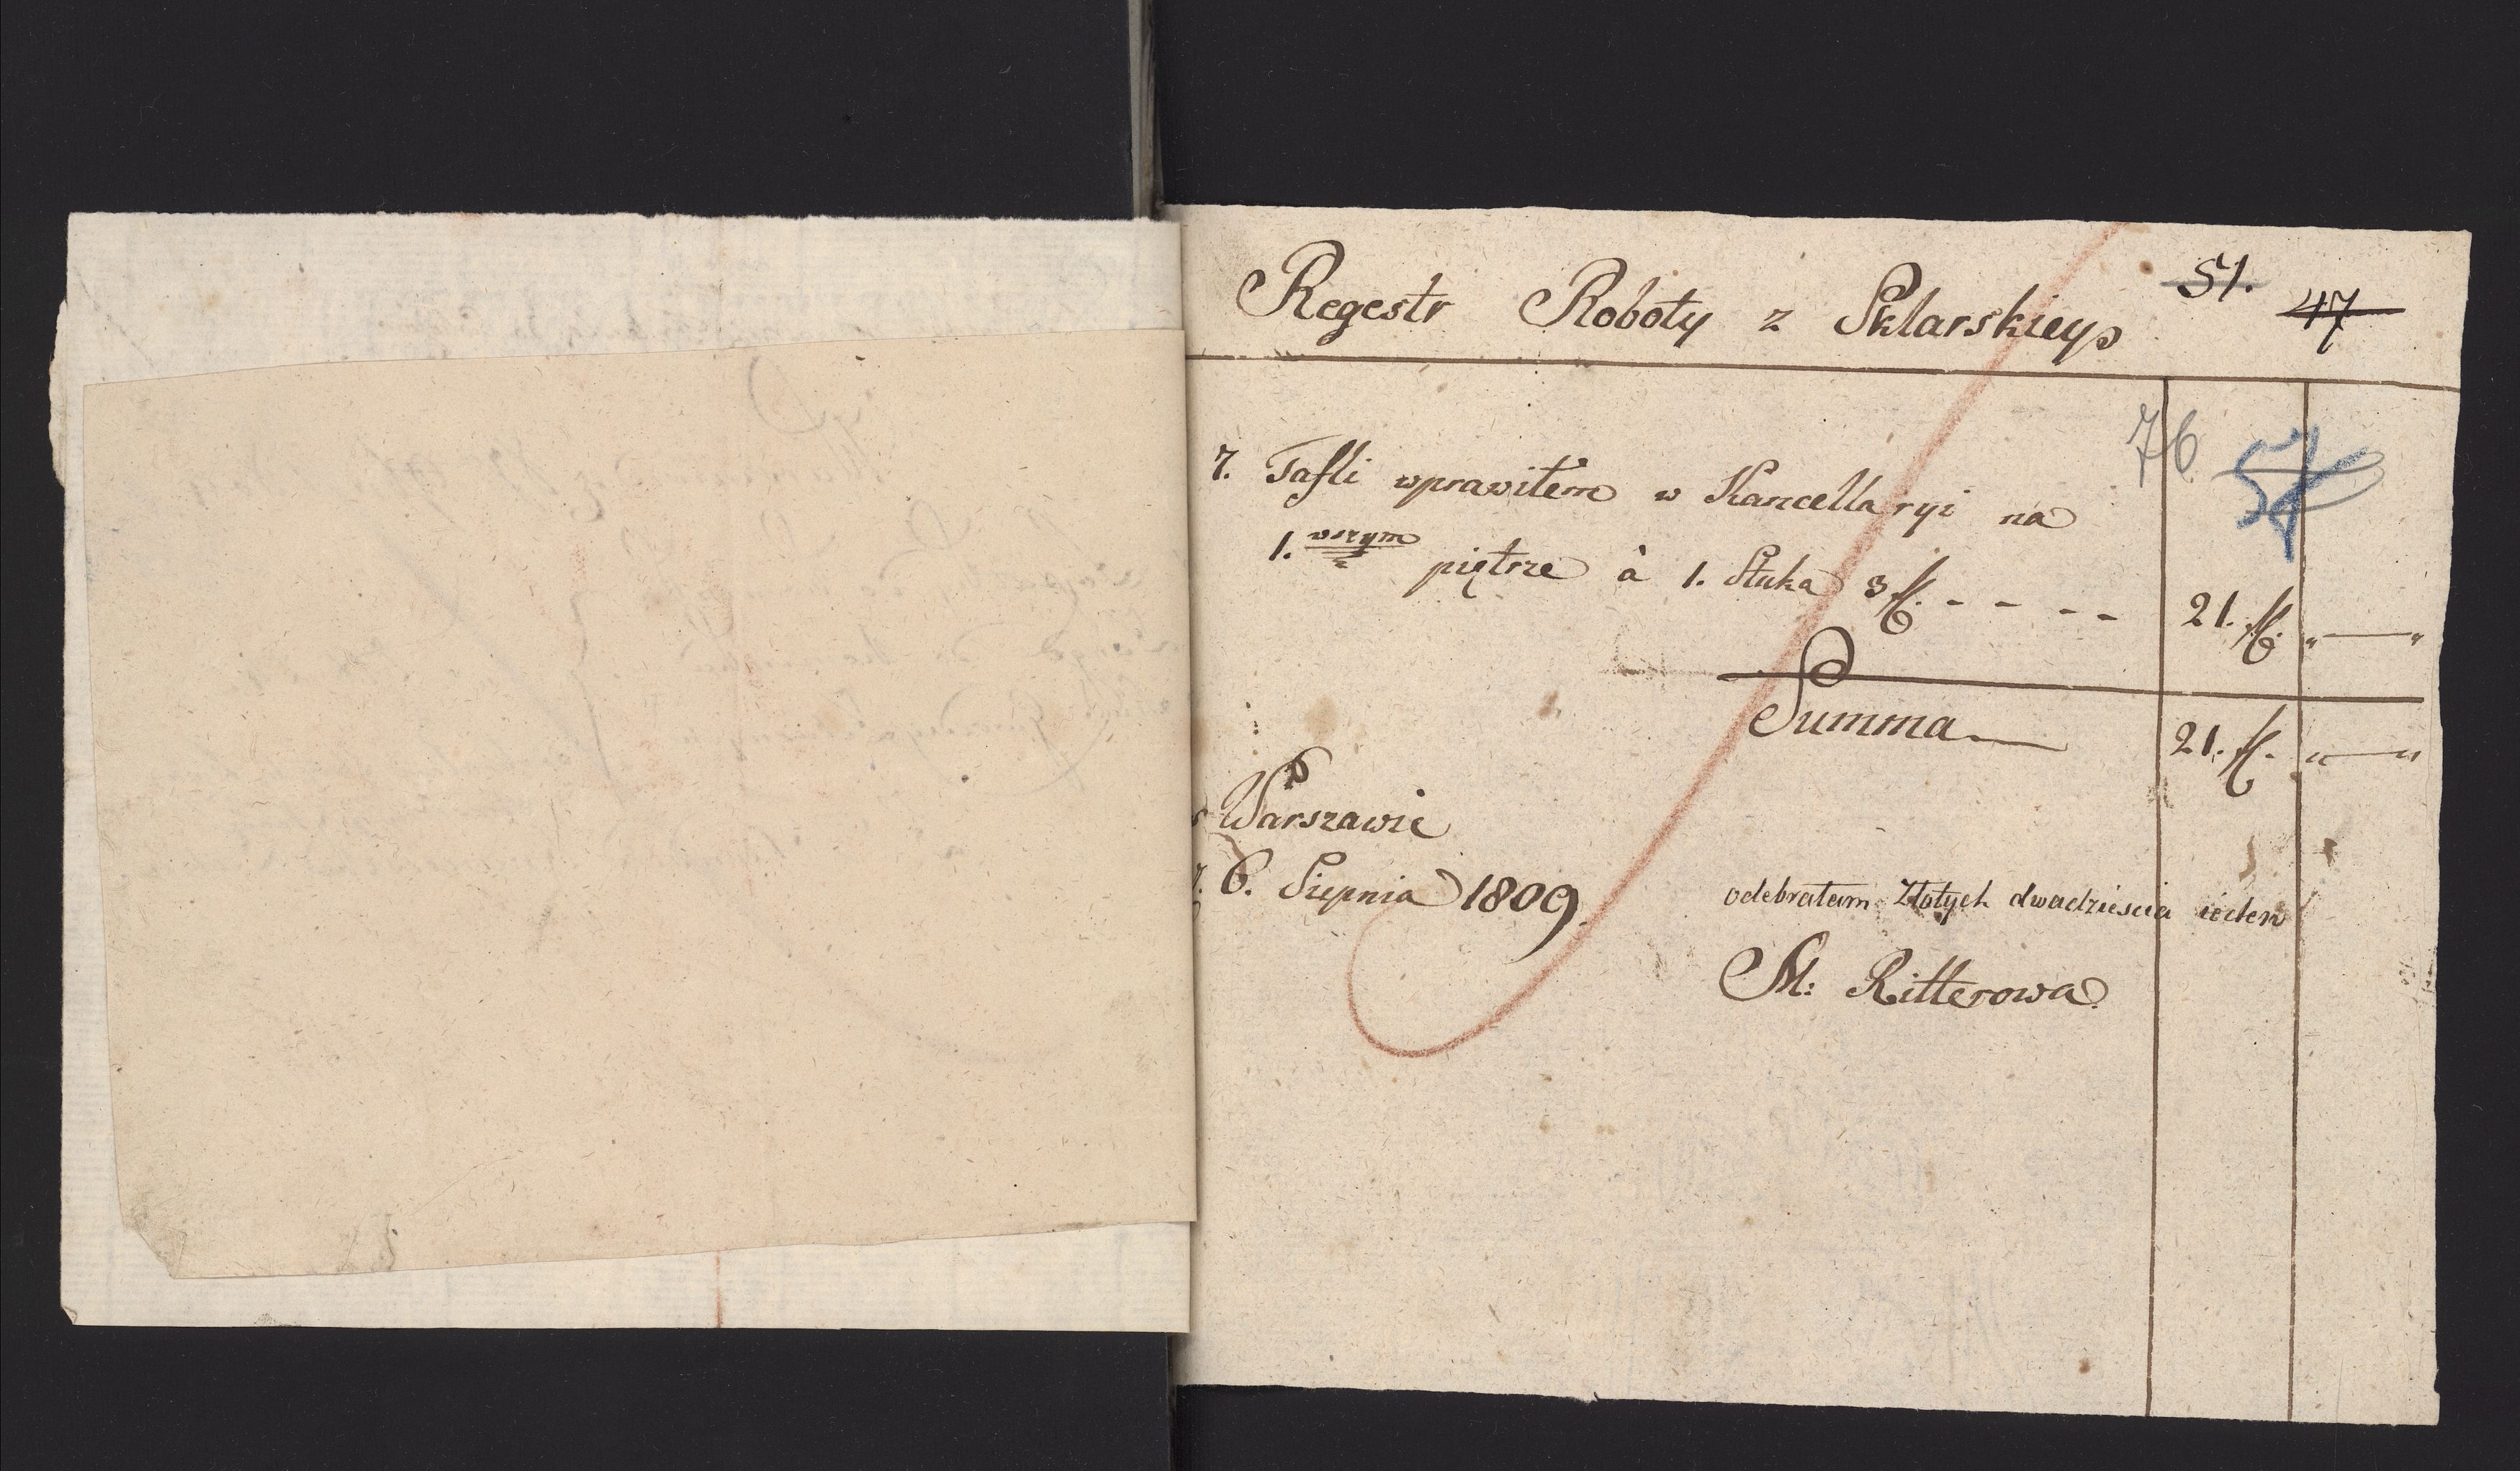 Regestr Roboty z Sklarskiey
51.
47
76
57
7. Tafli wprawiłem w Kancellaryi na
1. wszym piętrze à 1. Stuka 3 fl. - - - - 21. fl. " — "
Summa — 21. fl. " — "
Warszawie
6. Sierpnia 1809.
odebrałam Złotych dwadziescia ieden
M: Ritterowa